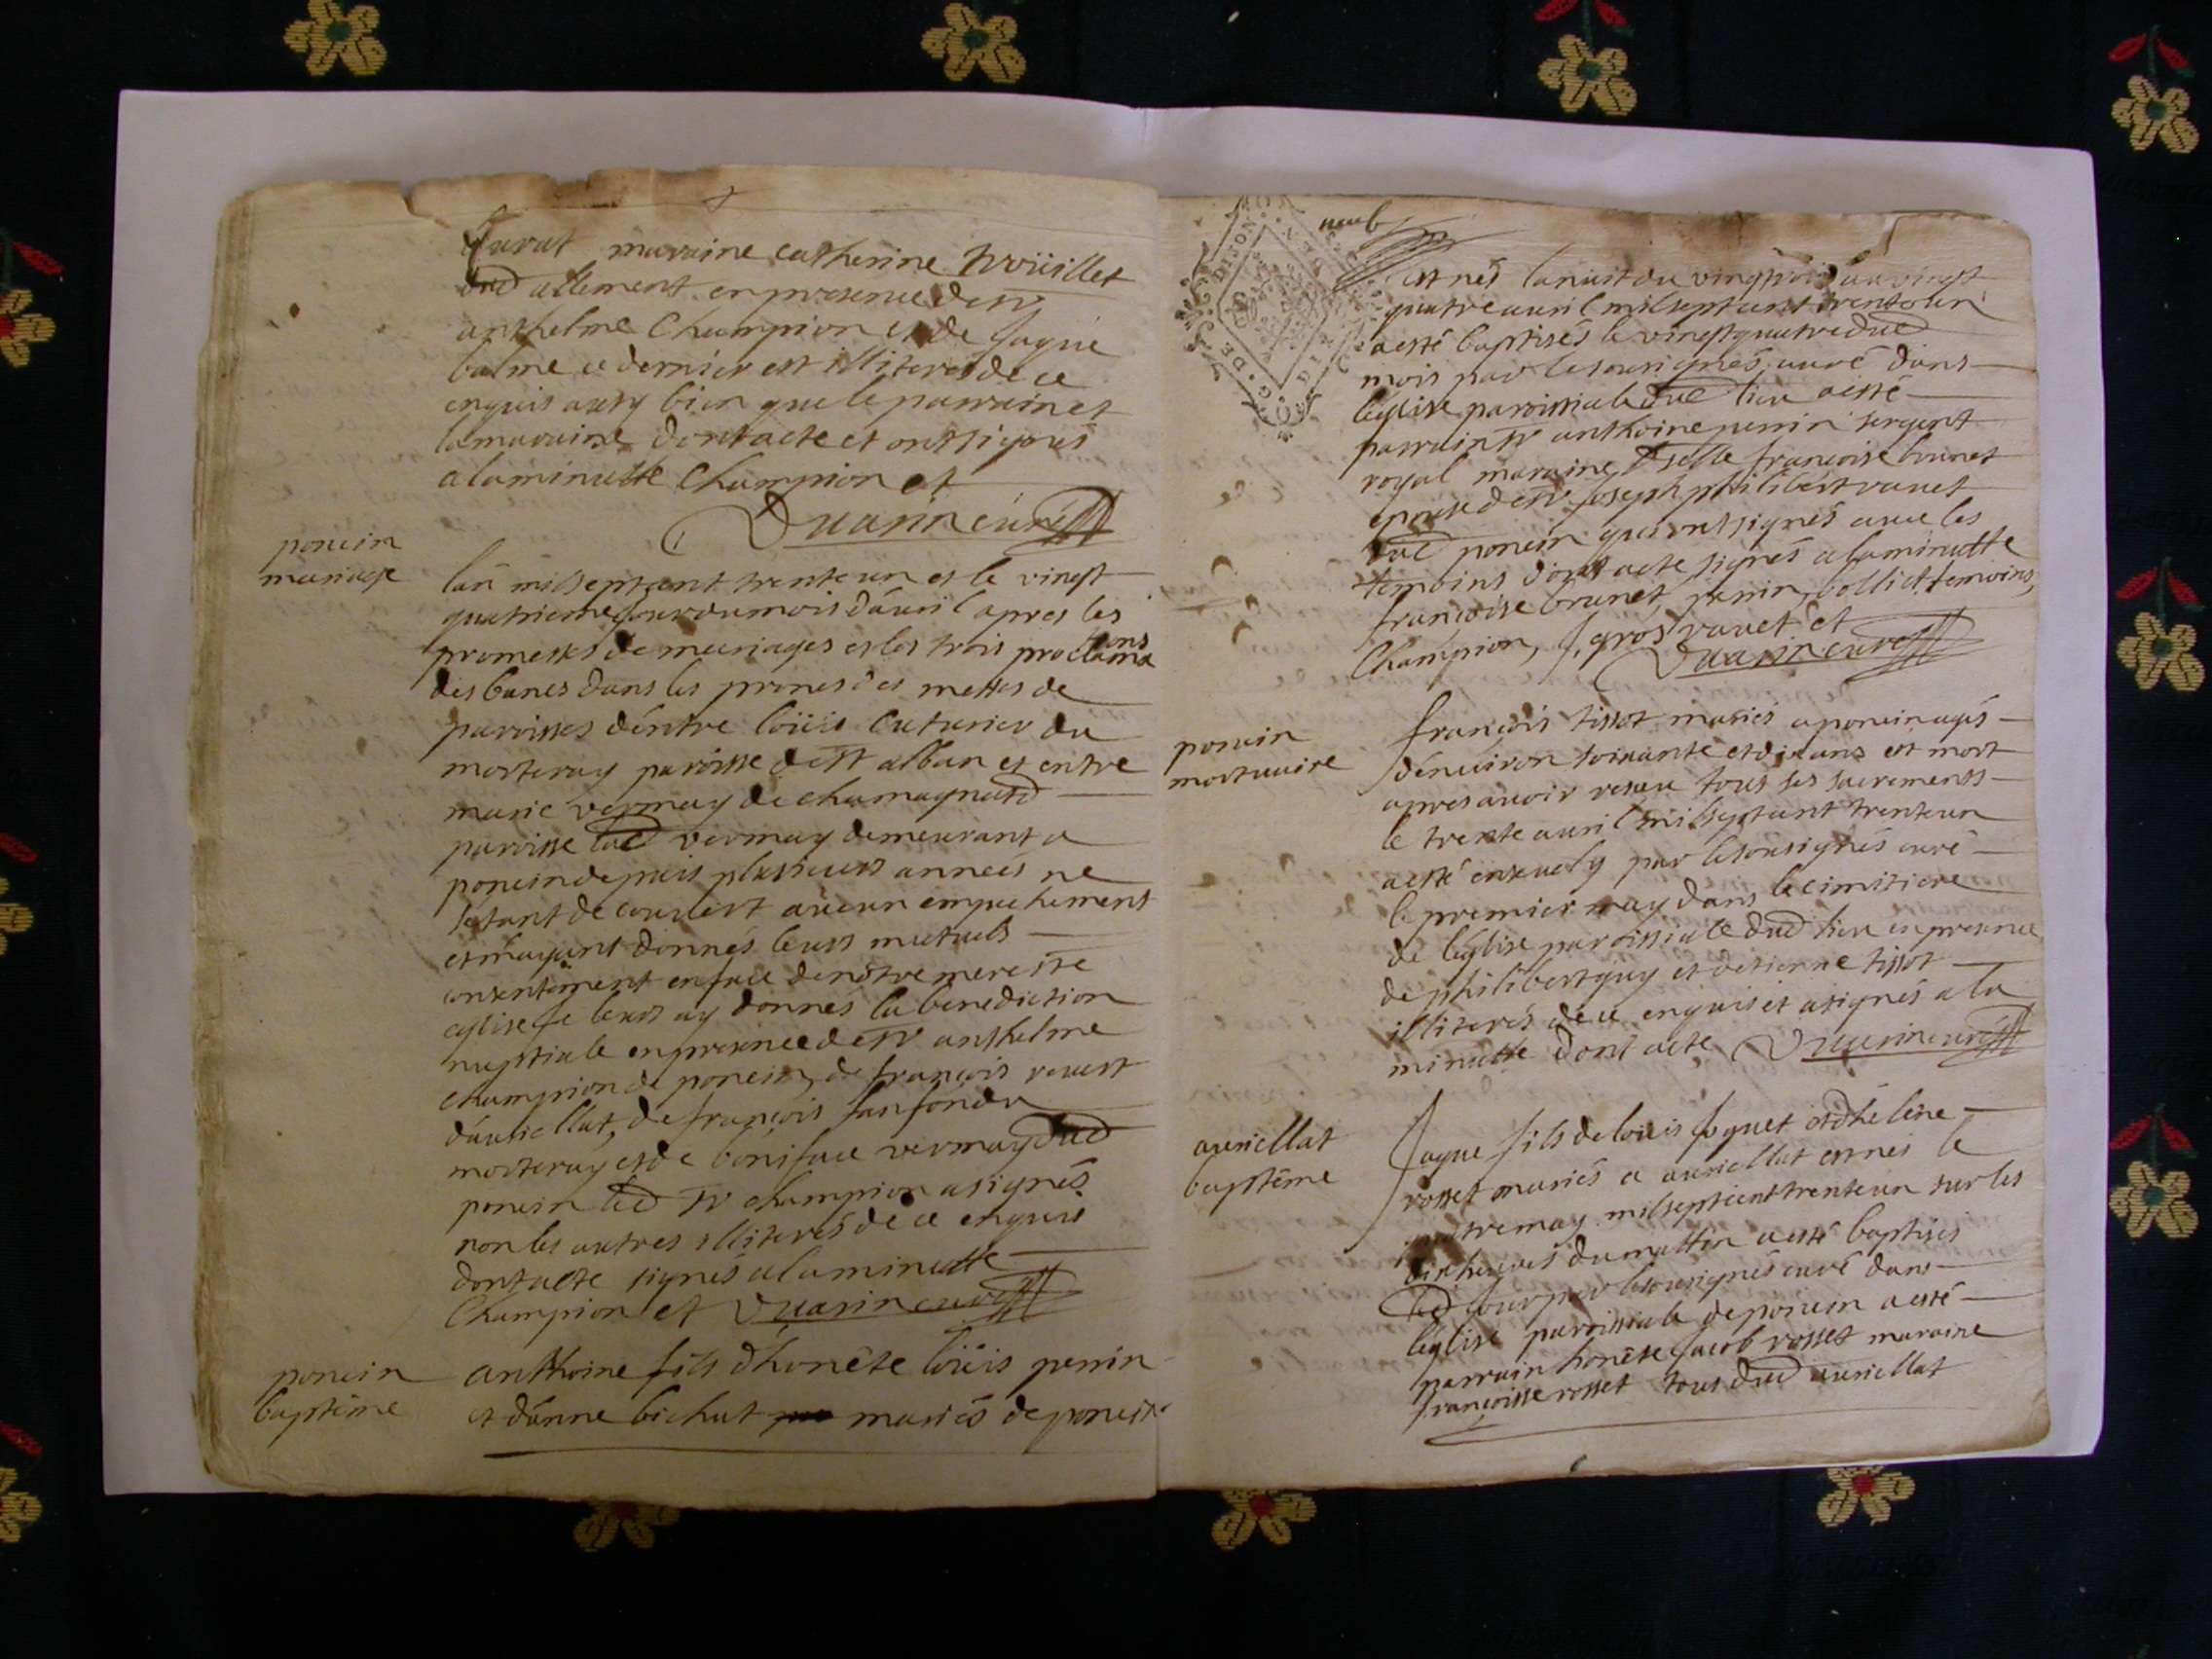 Jurat maraine catherine trouillet
dud allement en presence de sr
anthelme Champion et de Jaque
balme ce dernier est illiteres de ce
enquis aussy bien que le parrain et
la maraine dont acte et ont signes
a la minutte Champion et
Duarin curé
poncin
mariage
lan mil sept cent trente un et le vingt
quatrieme jour du mois dáuril apres les
promesses de mariages et les trois proclama
tions
des bancs dans les prones des messes de
paroisses déntre loüis cuturier du
morteray paroisse de st alban et entre
marie vermay de chamagnard
paroisse lad vermay demeurant a
poncin depuis plusieurs anneés ne
sétant decouvert aucun empechement
et máyant donnés leurs mutuels
consentement en face de nôtre mere ste
eglise Je leurs ay donnés la benediction
nuptiale en presence de sr anthelme
champion de poncin, de francois revest
dáuriellat, de francois
morteray et de boniface vermay dud
poncin led sr champion a signés
non les autres illiterés de ce enquis
dont acte signés a la minutte
Champion et Duarin curé
poncin
baptême
anthoine fils dhonête loüis perrin
et dánne bichat mariés de poncin
neuf
DE DIJON
est nés la nuit du vingt trois au vingt
quatre auril mil sept cent trente un
a esté baptisés le vingt quatre dud
mois par le sousignés curé dans
léglise paroissiale dud lieu a esté
parrain sr anthoine perrin sergent
royal maraine dselle francoise brunet
epouse de sr Joseph philibert ravet
dud poncin qui ont signés avec les
temoins dont acte signés a la minutte
francoise brunet, perrin, bolliet temoins,
Champion, J, gros ravet et
Duarin curé
poncin
mortuaire
francois tissot mariés a poncin agés
dénuiron soixante et dix ans est mort
apres avoir reseu tous ses sacrements
le trente auril mil sept cent trente un
a esté ensevely par le sousignés curé
le premier may dans le cimitiere
de léglise paroissiale dud lieu en presence
de philibert guy et detienne tissot
illiterés de ce enquis et a signés a la
minutte dont acte Duarin curé
auriellat
baptême
Jaque fils de louis foguet et dhélene
rosset mariés a auriellat est nés le
quatre may mil sept cent trente un sur les
six heures du mattin a esté baptisés
led jour par le sousignés curé dans
léglise paroissiale de poncin a esté
parrain honête Jacob rosset maraine
francoisse rosset tous dud auriellat